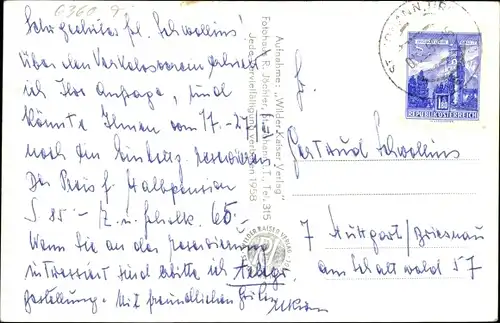 6360 9
Sehr geehrtes Frl. Schwollins!
Über den Verkehrsverein erhielt
ich Ihre Anfrage, und
könnte Ihnen vom 17.-27.
noch ein reservieren
Der Preis f. Halbpension
S 85.- Z. u. 65.-
Wenn Sie an der Reservierung
interessiert sind bitte ich telegr.
Bestellung. Mit freundlichen Grüßen
Aufnahme: „Wilder Kaiser-Verlag"
Fotohaus R. Jöchler, St. Johann i. T., Tel. 315
Jede Vervielfältigung verboten 1958
WILDER KAISER VERLAG
ST. JOHANN, TIROL
REPUBLIK ÖSTERREICH
Frl.
Gertraud Schwollins
7 Stuttgart /
am Schattwald 57